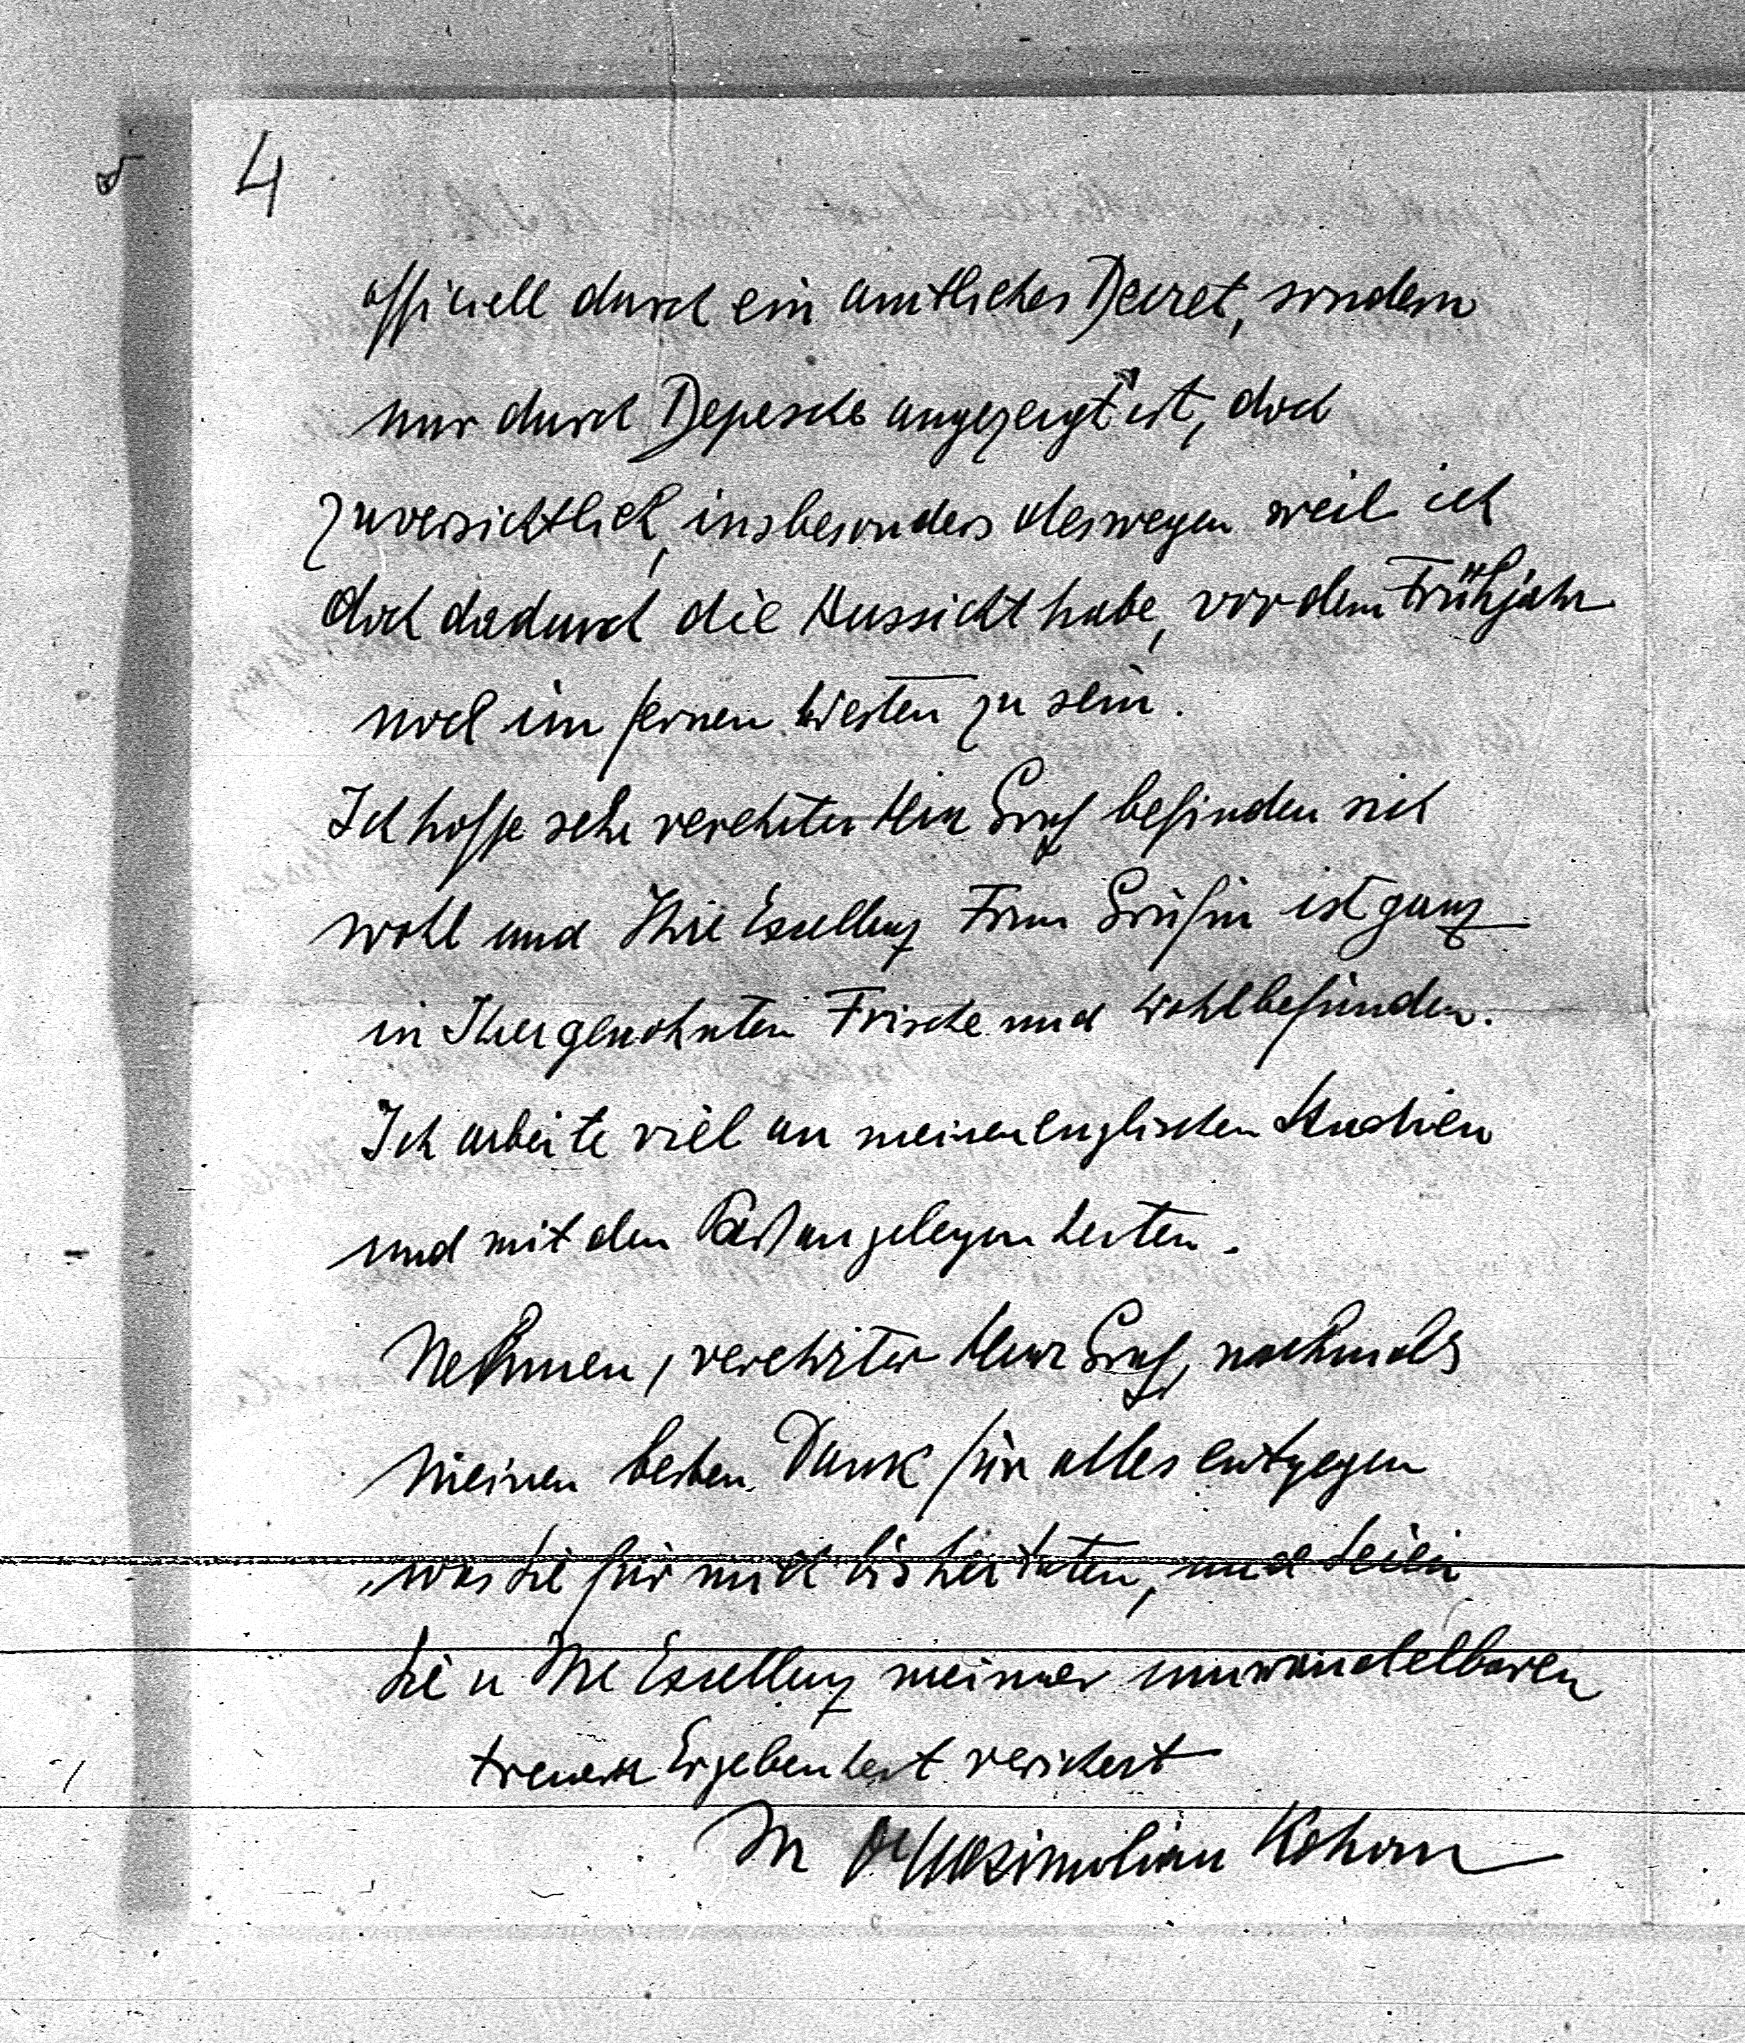 4
officiell durch ein amtliches Decret, sondern
nur durch Depesche angezeigt ist, doch
zuversichtlich, insbesonders deswegen weil ich
doch dadurch die Aussicht habe, vor dem Frühjahr
noch im fernen Westen zu sein.
Ich hoffe sehr verehrter Herr Graf befinden sich
wohl und Ihre Excellenz Frau Gräfin ist ganz
in Ihrer gewohnten Frische und Wohlbefinden.
Ich arbeite viel an meinen englischen Studien
und mit den angelegenheiten.
Nehmen, verehrter Herr Graf, nochmals
meinen besten Dank für alles entgegen
was Sie für mich bisher taten, und seien
Sie u Ihre Excellenz meiner unwandelbaren
treuen Ergebenheit versichert
Maximilian